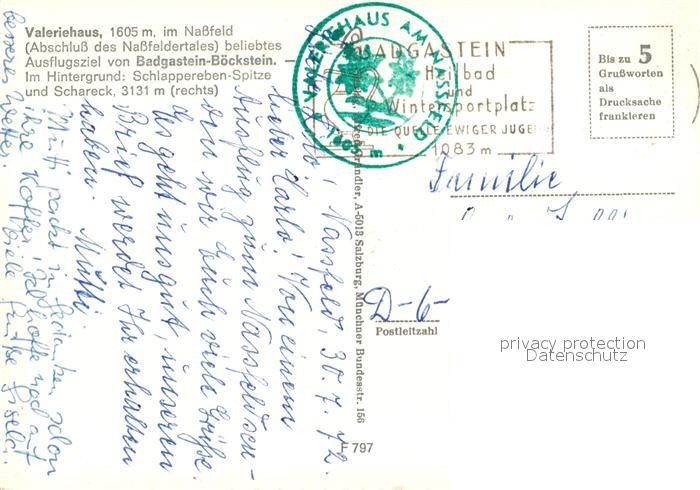 Valeriehaus, 1605 m, im Naßfeld
(Abschluß des Naßfeldertales) beliebtes
Ausflugsziel von Badgastein-Böckstein. —
Im Hintergrund: Schlappereben-Spitze
und Schareck, 3131 m (rechts)
VALERIEHAUS AM NASSFELD
1605 m
BADGASTEIN
Heilbad
und
Wintersportplatz
DIE QUELLE EWIGER JUGEND
1083 m
Bis zu 5
Grußworten
als
Drucksache
frankieren
Familie
D-6-
Postleitzahl
A-5013 Salzburg, Münchner Bundesstr. 156
F 797
Nassfeld, 30.7.72.
Lieber Carlo! Von einem
Ausflug zum Nassfeld sen-
den wir Euch viele Grüße.
Es geht uns gut, unseren
Brief werdet Ihr erhalten
haben. Mutti.
Mutti packt in Gedanken schon
ihre Koffer, ich hoffe noch auf
besseres Wetter. Viele Grüße Gisela.
privacy protection
Datenschutz